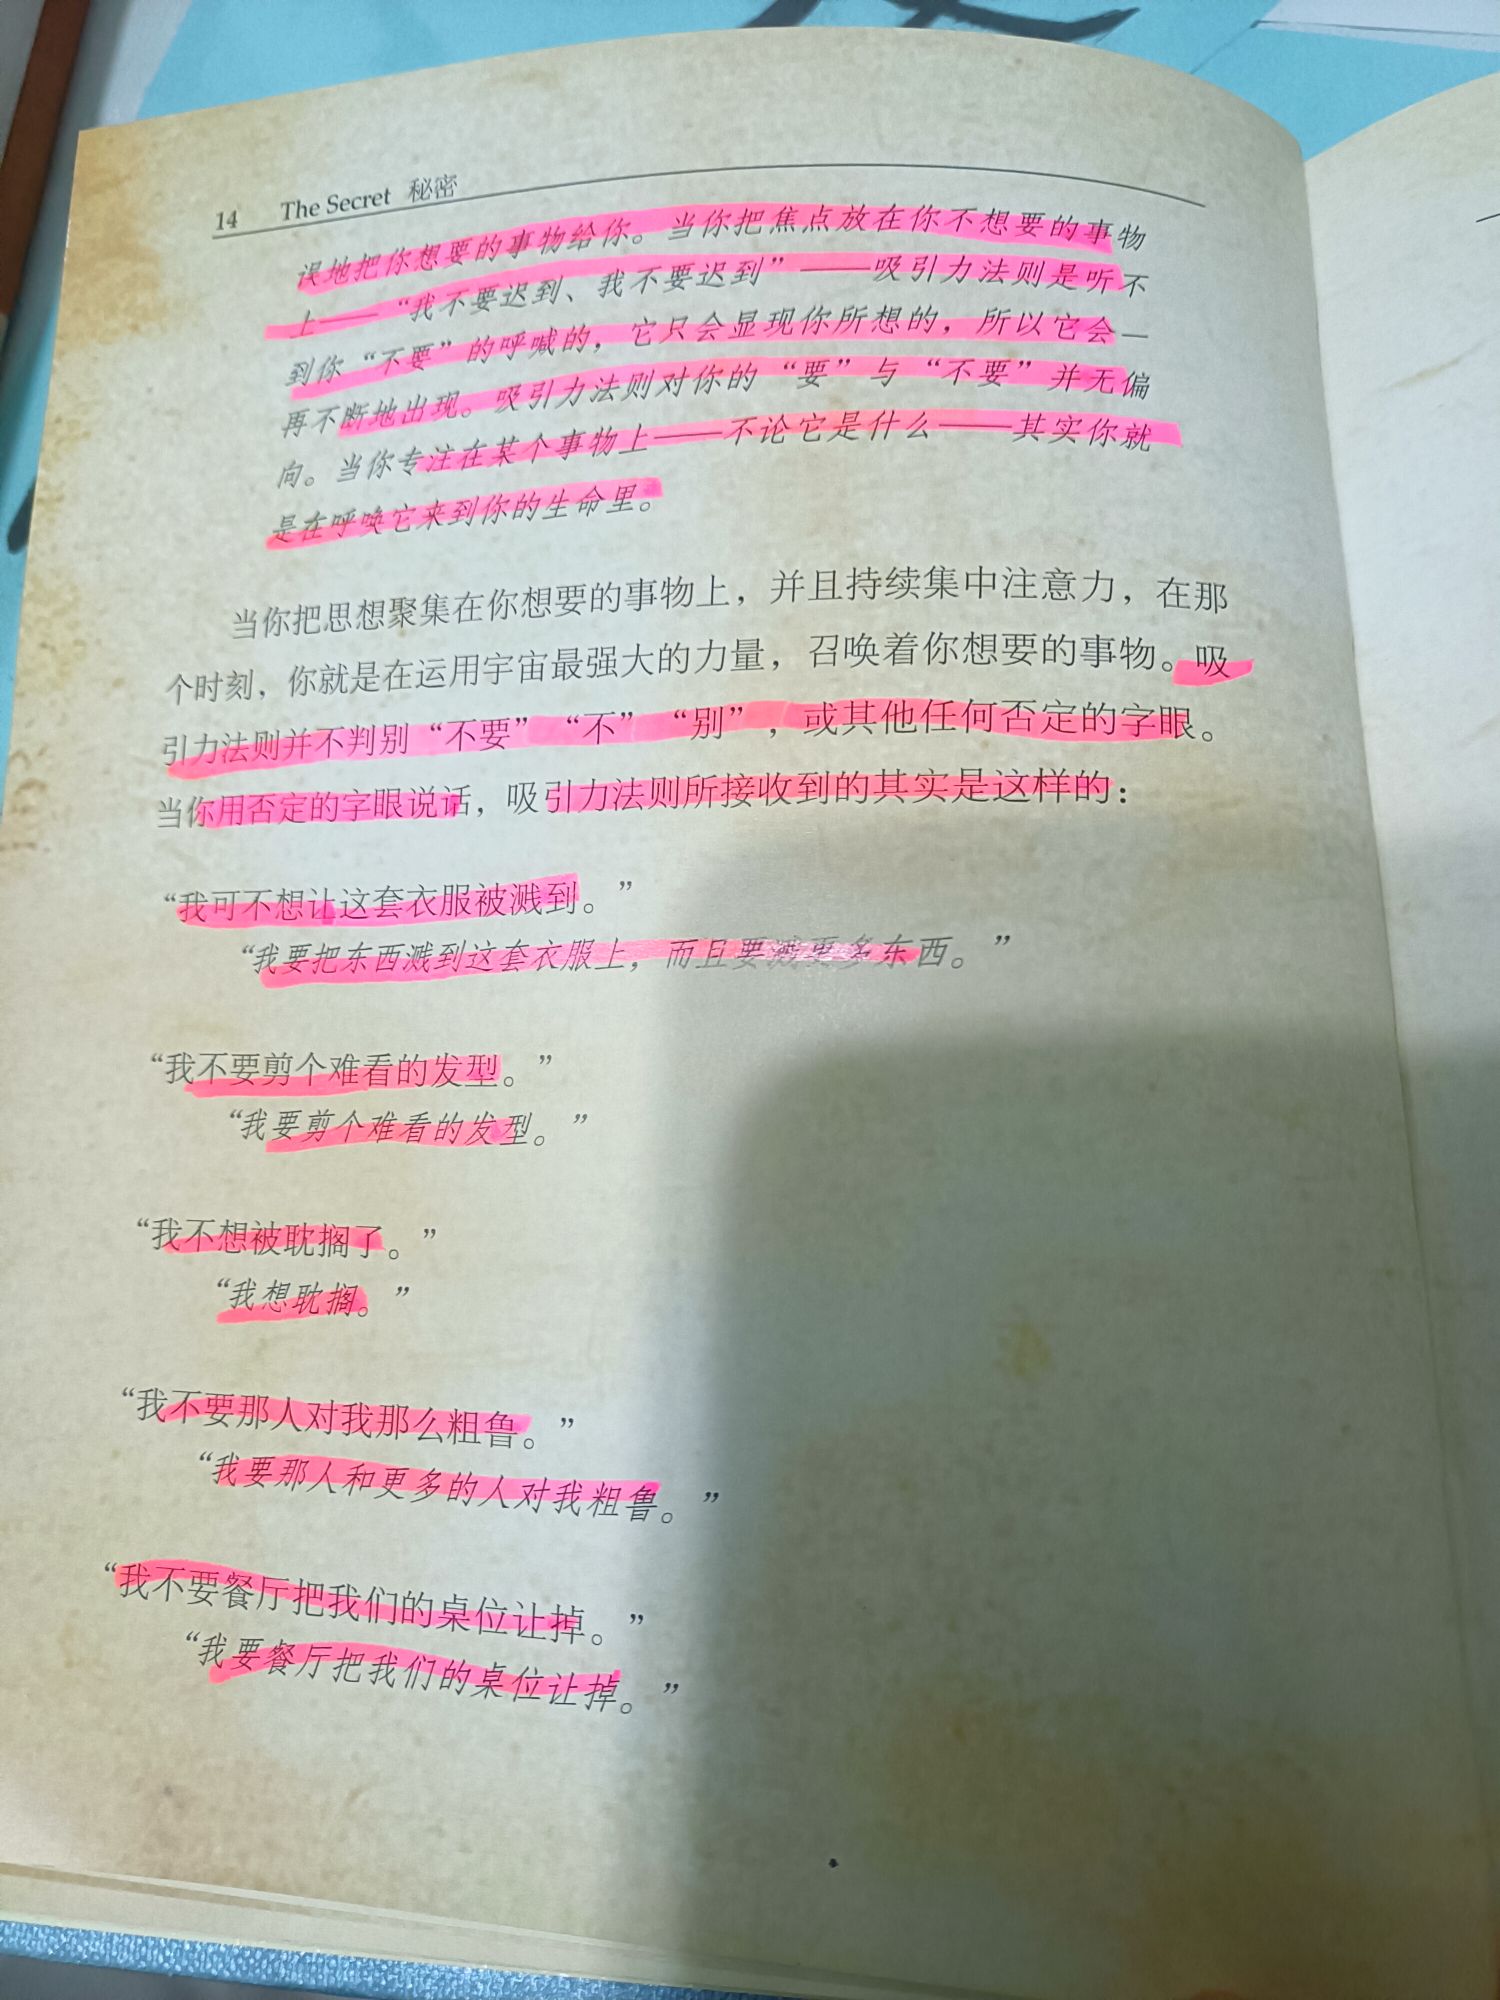 14 The Secret 秘密
误地把你想要的事物给你。当你把焦点放在你不想要的事物
上——“我不要迟到、我不要迟到”——吸引力法则是听不
到你“不要”的呼喊的，它只会显现你所想的，所以它会一
再不断地出现。吸引力法则对你的“要”与“不要”并无偏
向。当你专注在某个事物上——不论它是什么——其实你就
是在呼唤它来到你的生命里。
当你把思想聚集在你想要的事物上，并且持续集中注意力，在那
个时刻，你就是在运用宇宙最强大的力量，召唤着你想要的事物。吸
引力法则并不判别“不要”“不”“别”，或其他任何否定的字眼。
当你用否定的字眼说话，吸引力法则所接收到的其实是这样的：
“我可不想让这套衣服被溅到。”
“我要把东西溅到这套衣服上，而且要溅更多东西。”
“我不要剪个难看的发型。”
“我要剪个难看的发型。”
“我不想被耽搁了。”
“我想耽搁。”
“我不要那人对我那么粗鲁。”
“我要那人和更多的人对我粗鲁。”
“我不要餐厅把我们的桌位让掉。”
“我要餐厅把我们的桌位让掉。”